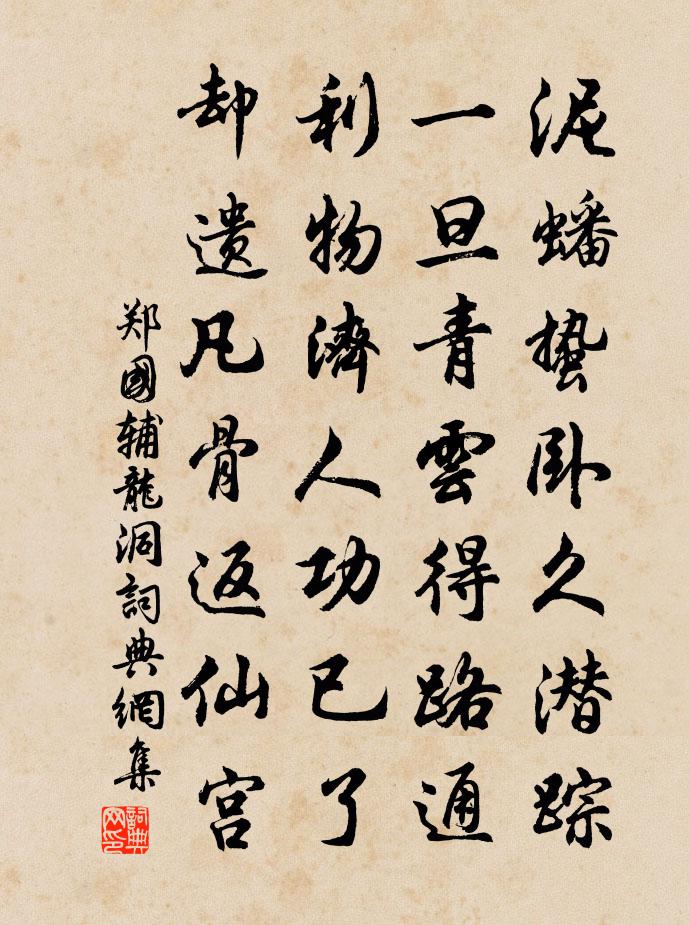 泥蟠蛰卧久潜踪
一旦青雲得路通
利物濟人功已了
却遗凡骨返仙宫
郑國辅龍洞詞典網集
詞典网印